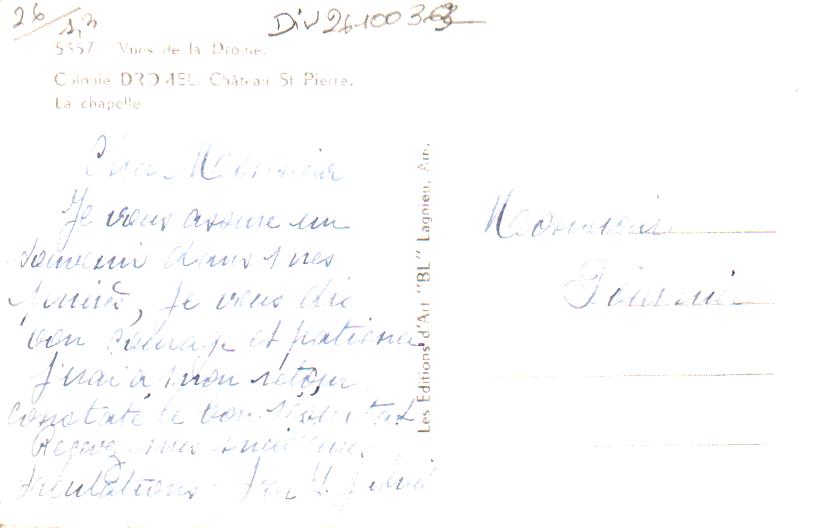 26/
Div 26100
5357 Vues de la Drome.
Colonie DROMEL Château St Pierre.
La chapelle
Cher Monsieur
Je vous assure un
souvenir dans mes
prières, Je vous dis
bon courage et patience
J'irai à mon retour
constaté le bon résultat
Recevez mes meilleures
Les Editions d'Art "BL" Lagnieu, Ain.
Monsieur